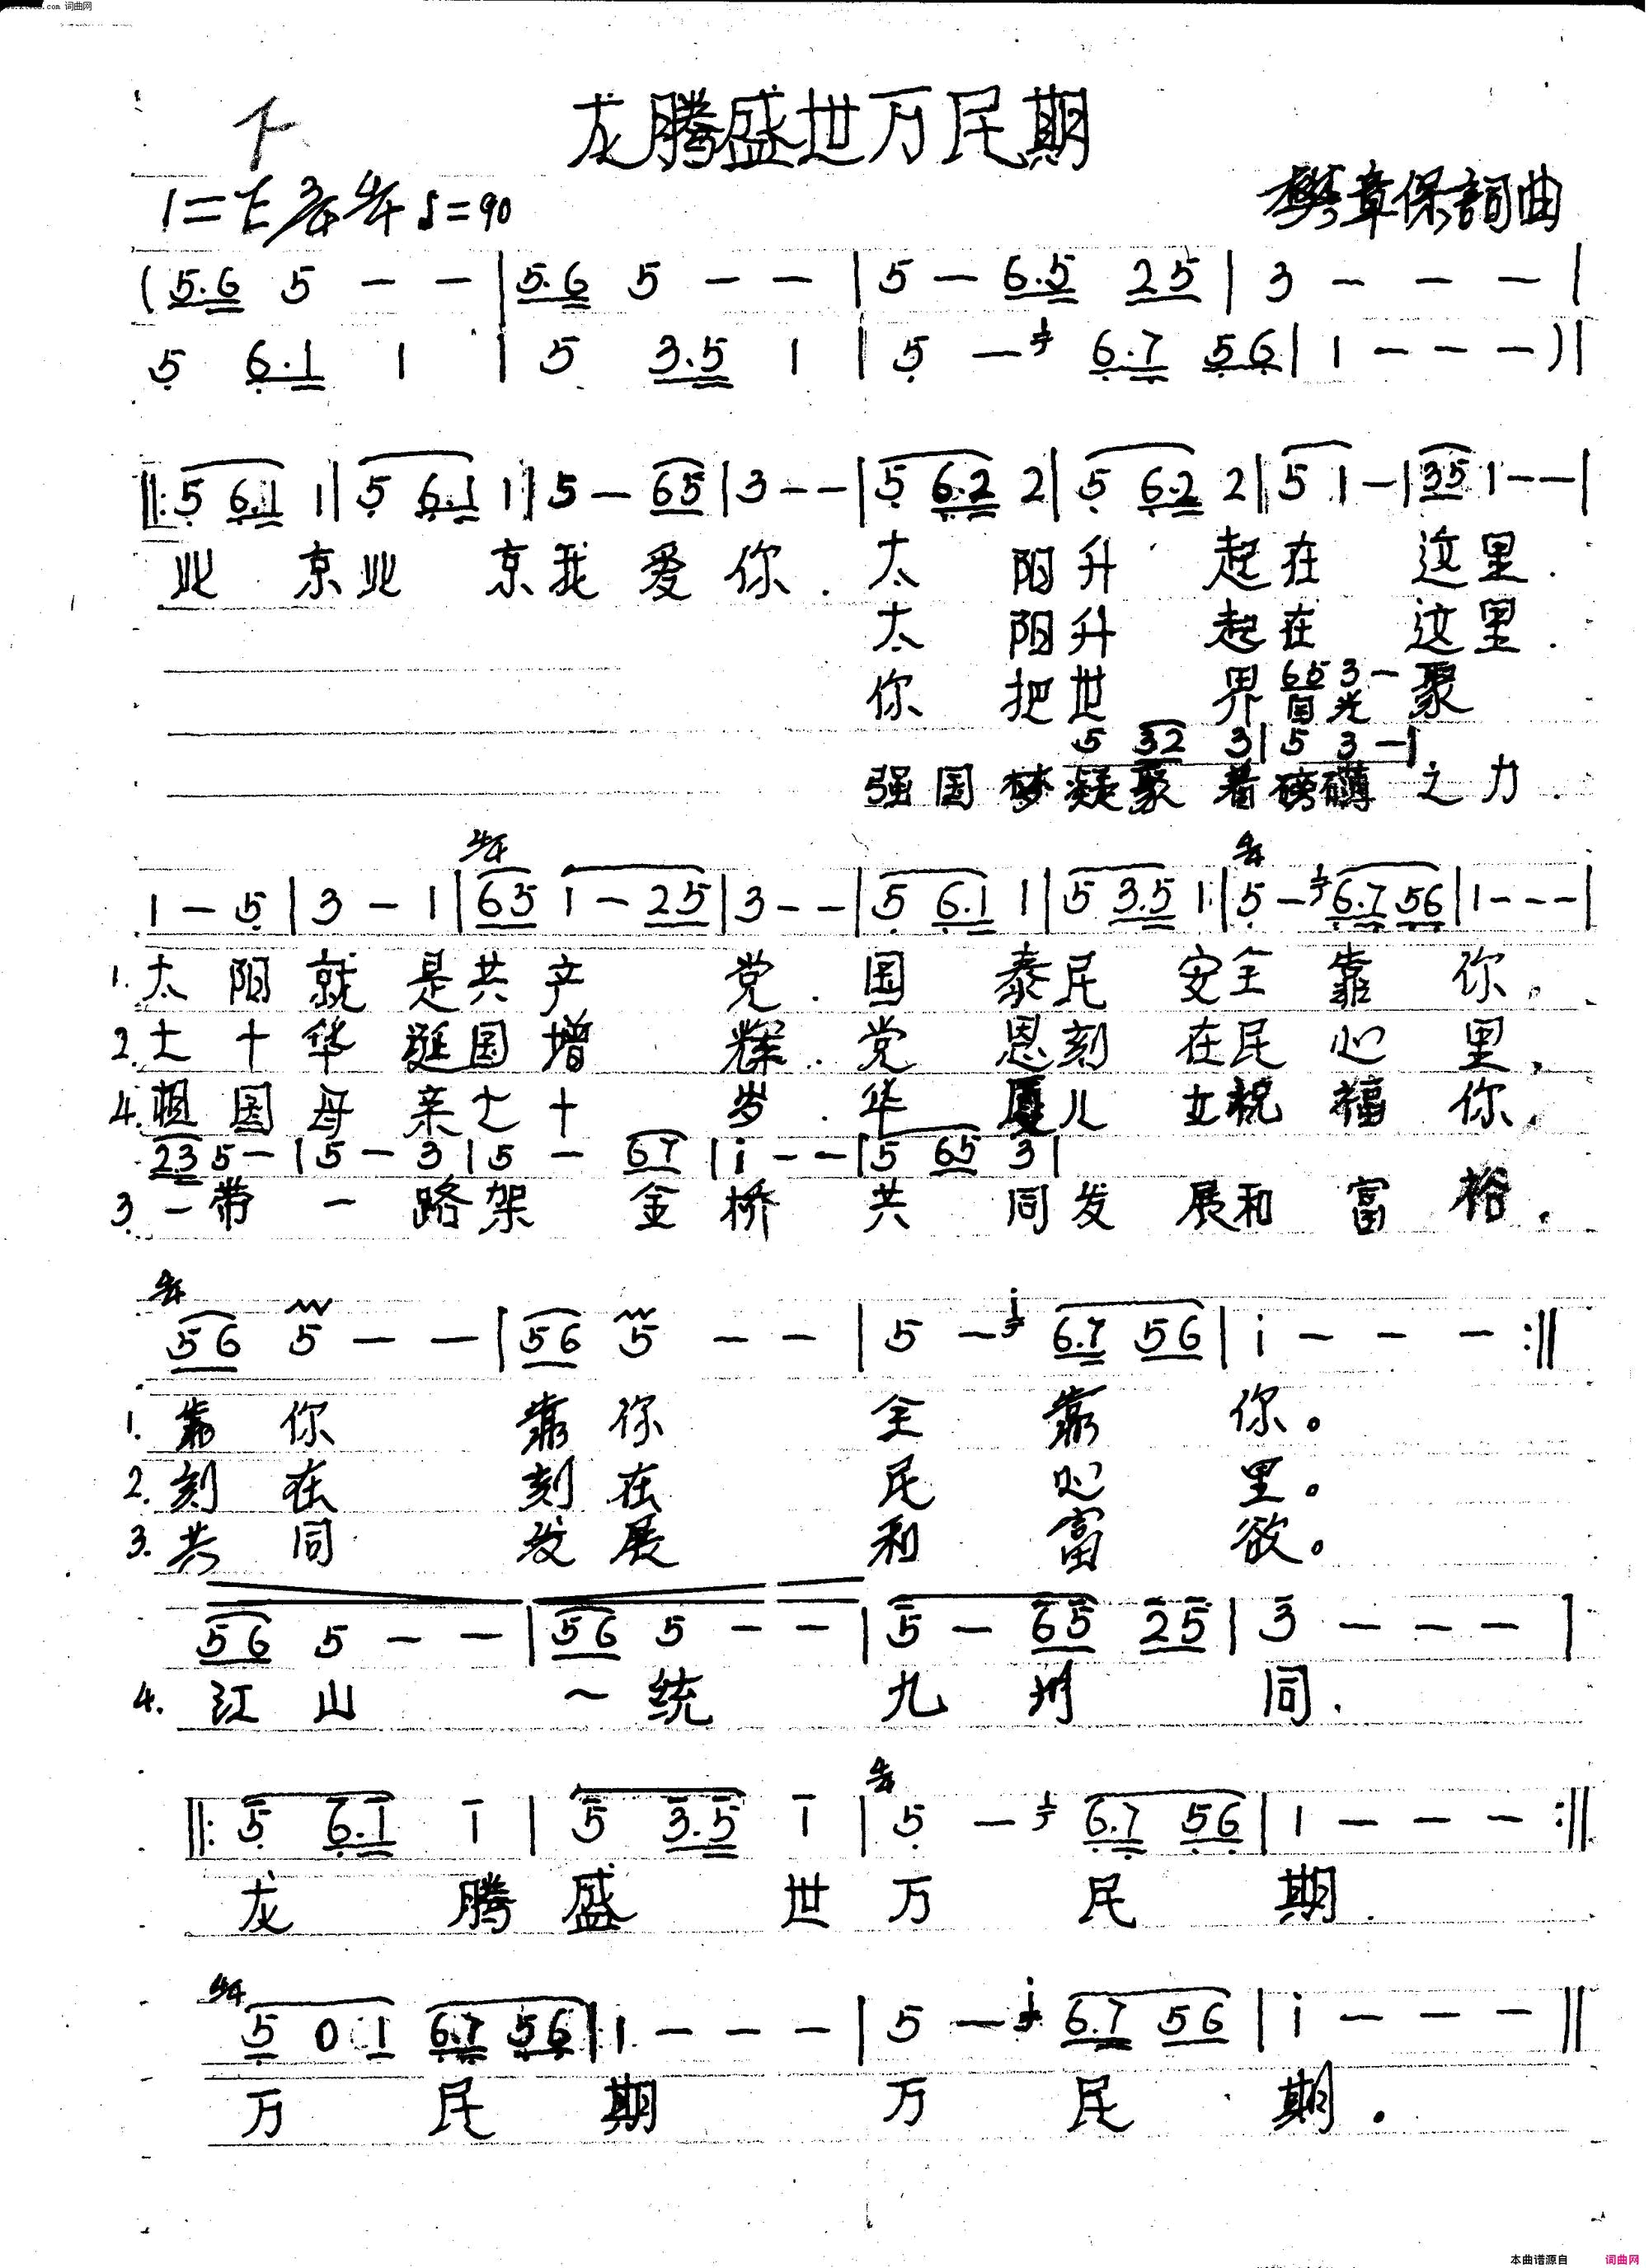 词曲网
下
龙腾盛世万民期
章保詞曲
=90
(5.6 5 - - | 5.6 5 - - | 5 - 6.5 25 | 3 - - - |
5 6.1 1 | 5 3.5 1 | 5 - 6.7 56 | 1 - - - )|
‖: 5 6.1 1 | 5 6.1 1 | 5 - 65 | 3 - - | 5 6.2 2 | 5 6.2 2 | 5 1 - | 35 1 - - |
北 京北 京我爱你. 太 阳升 起在 这里.
太 阳升 起在 这里.
65 3 -
你 把世 界目光 聚
5 32 3 | 5 3 - |
强国梦凝聚着磅礴之力.
1 - 5 | 3 - 1 | 65 1 - 25 | 3 - - | 5 6.1 1 | 5 3.5 1 | 5 - 6.7 56 | 1 - - - |
1. 太阳就是共产党. 国泰民安全靠你,
2. 七十华诞国增辉. 党恩刻在民心里,
4. 祖国母亲七十岁. 华厦儿女祝福你,
23 5 - | 5 - 3 | 5 - 67 | i - - | 5 65 3 |
3. 一带一路架金桥共同发展和富裕.
56 5 - - | 56 5 - - | 5 - 6.7 56 | i - - - :‖
1. 靠你 靠你 全靠你。
2. 刻在 刻在 民心里。
3. 共同 发展 和富欲。
56 5 - - | 56 5 - - | 5 - 65 25 | 3 - - - |
4. 江山 一统 九州同.
‖: 5 6.1 1 | 5 3.5 1 | 5 - 6.7 56 | 1 - - - :‖
龙 腾盛 世万 民 期.
5 0 1 6.7 56 | 1 - - - | 5 - 6.7 56 | i - - - ‖
万 民 期 万 民 期.
本曲谱源自 词曲网